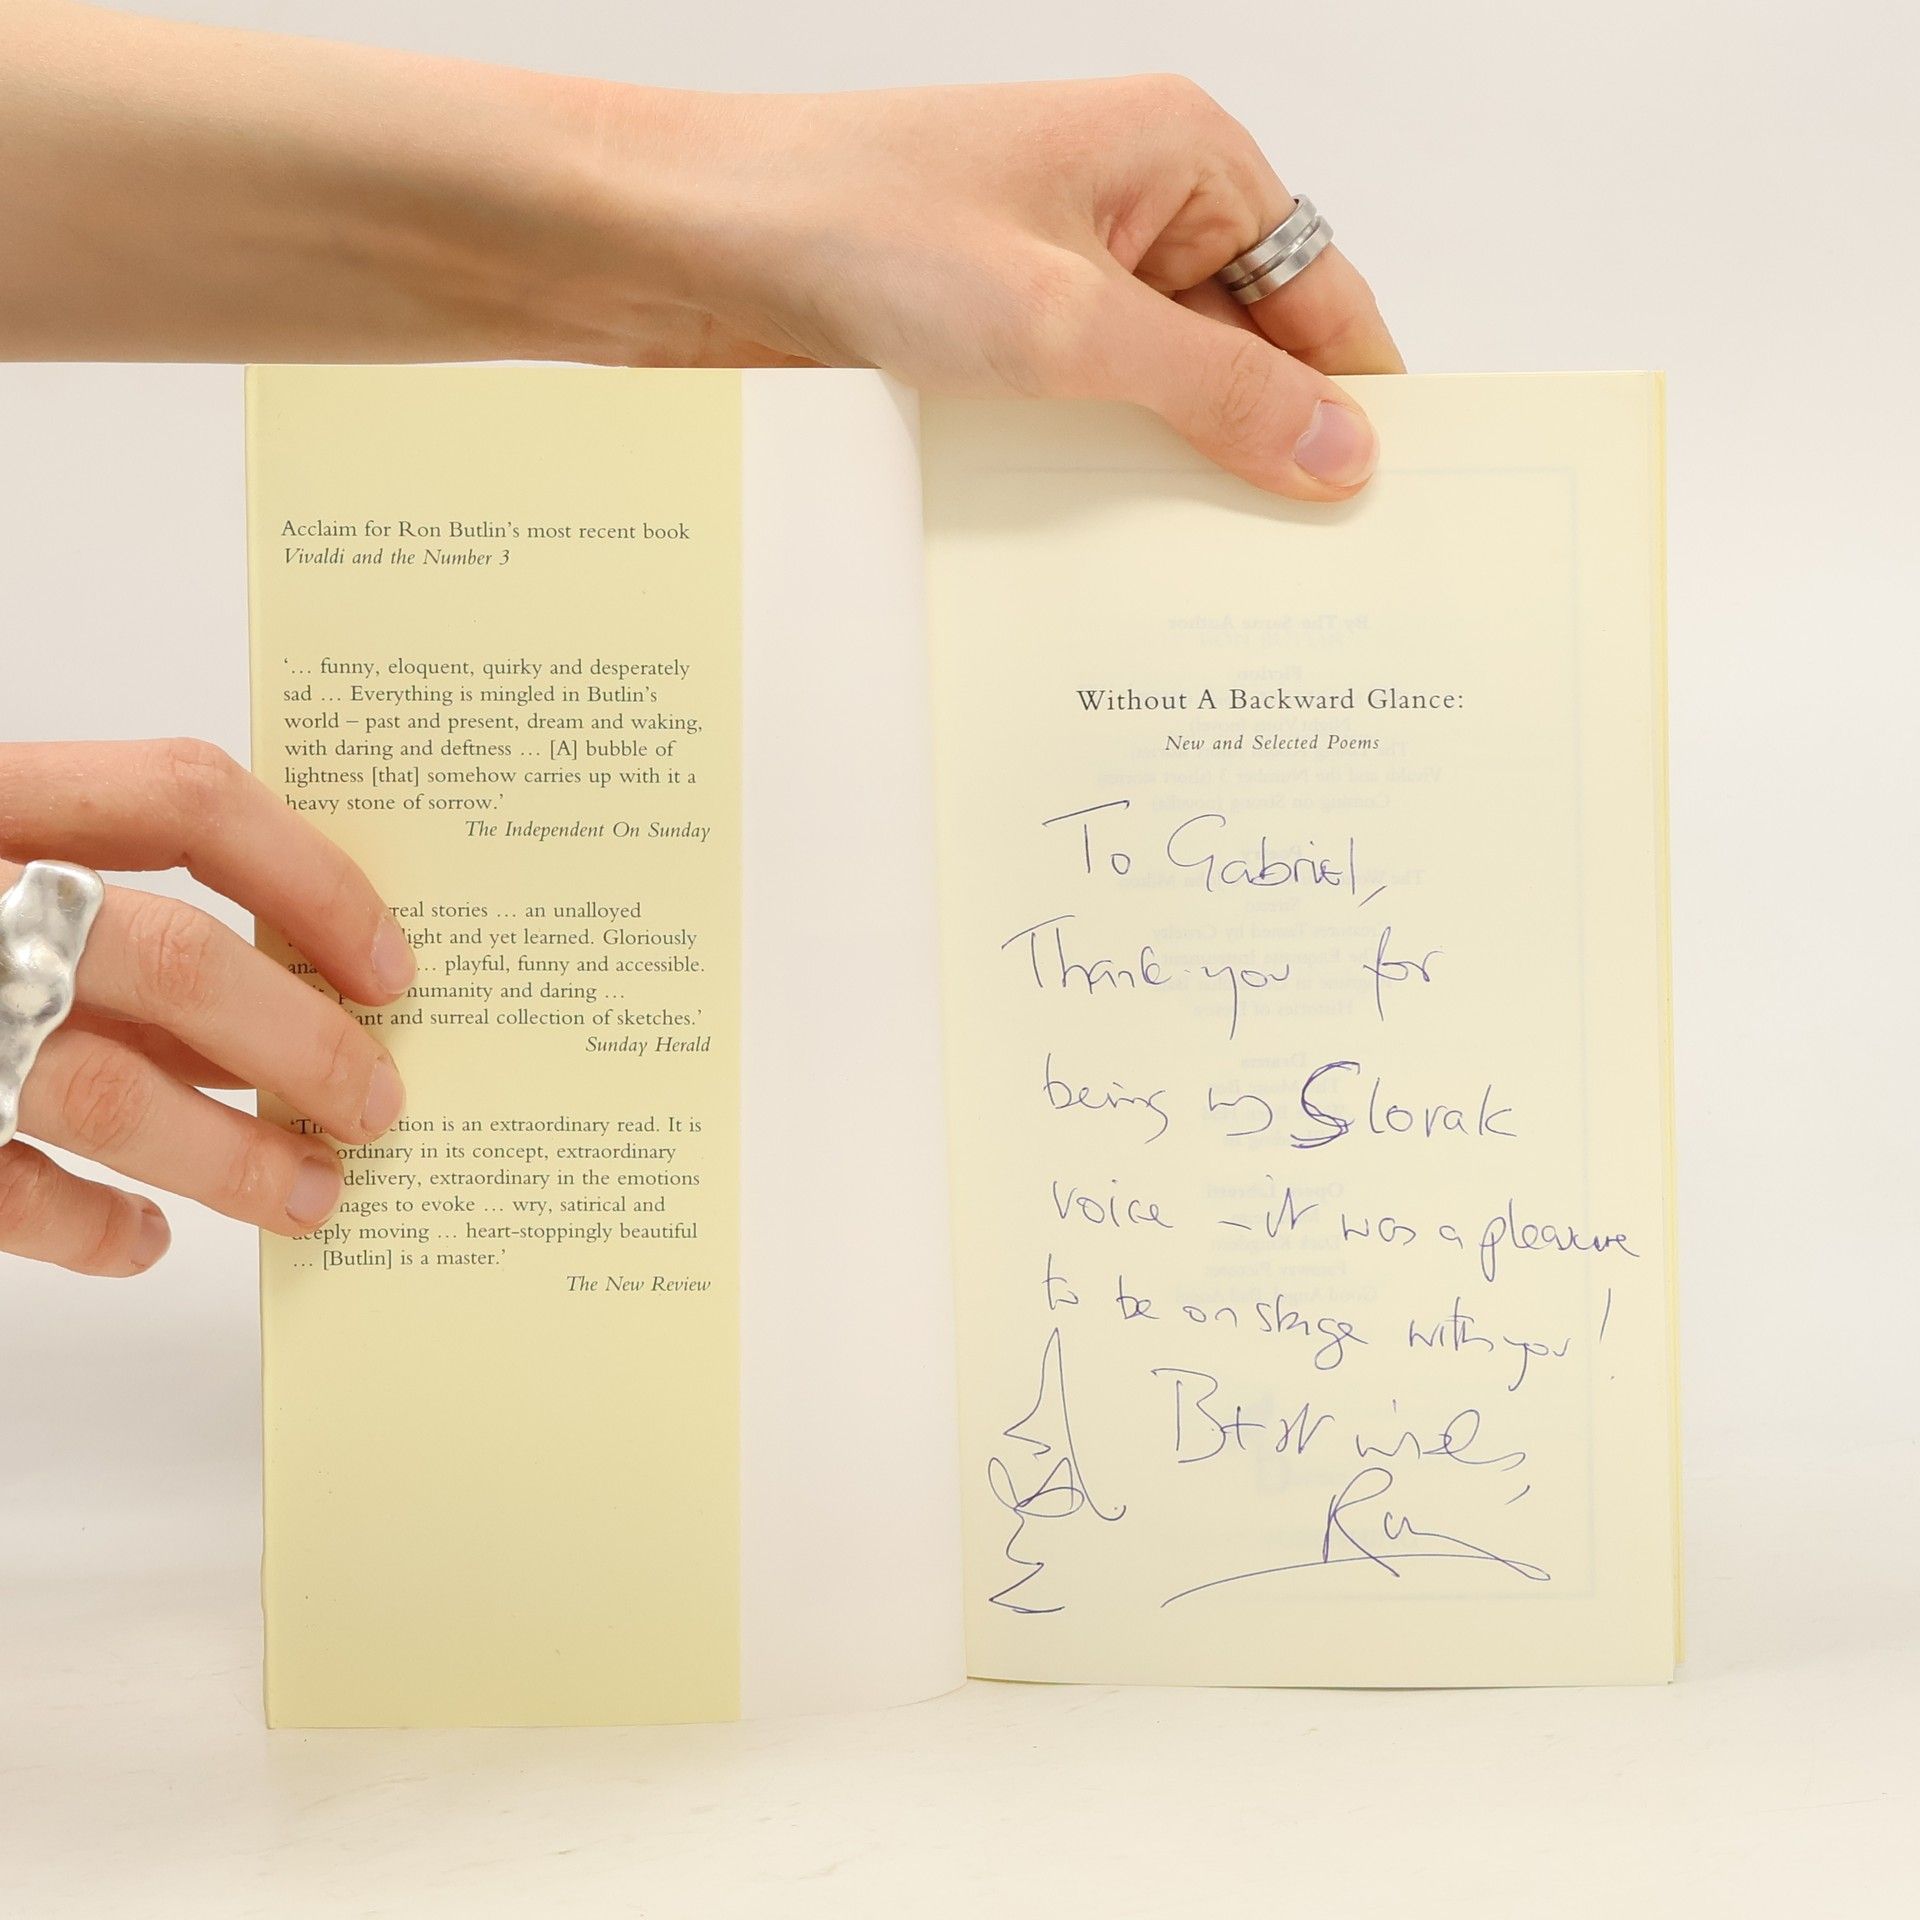 Acclaim for Ron Butlin's most recent book
Vivaldi and the Number 3
'… funny, eloquent, quirky and desperately
sad … Everything is mingled in Butlin's
world – past and present, dream and waking,
with daring and deftness … [A] bubble of
lightness [that] somehow carries up with it a
heavy stone of sorrow.'
The Independent On Sunday
stories … an unalloyed
light and yet learned. Gloriously
… playful, funny and accessible.
humanity and daring …
and surreal collection of sketches.'
Sunday Herald
is an extraordinary read. It is
in its concept, extraordinary
delivery, extraordinary in the emotions
to evoke … wry, satirical and
deeply moving … heart-stoppingly beautiful
… [Butlin] is a master.'
The New Review
Without A Backward Glance:
New and Selected Poems
To Gabriel,
Thank you for
being my Slovak
voice – it was a pleasure
to be on stage with you!
Best wishes,
Ron